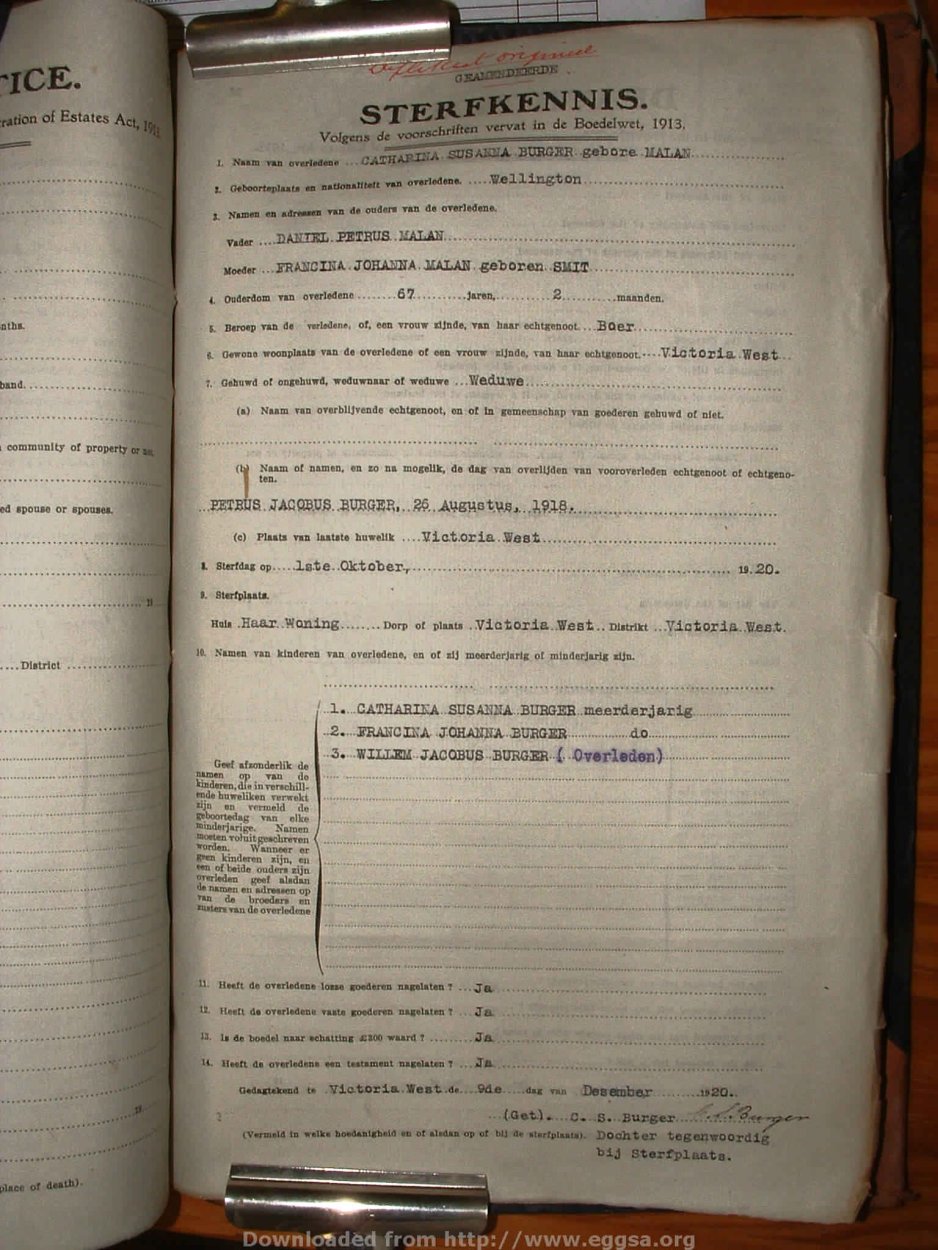 TICE.
ration of Estates Act, 1913
nths.
band.
community of property or no
ed spouse or spouses.
19
District
19
place of death).
original
GEAMENDEERDE
STERFKENNIS.
Volgens de voorschriften vervat in de Boedelwet, 1913.
1. Naam van overledene ... CATHARINA SUSANNA BURGER gebore MALAN
2. Geboorteplaats en nationaliteit van overledene. .... Wellington
3. Namen en adressen van de ouders van de overledene.
Vader .... DANIEL PETRUS MALAN
Moeder ... FRANCINA JOHANNA MALAN geboren SMIT
4. Ouderdom van overledene ....... 67 ......... jaren, ......... 2 ......... maanden.
5. Beroep van de verledene, of, een vrouw zijnde, van haar echtgenoot.... Boer
6. Gewone woonplaats van de overledene of een vrouw zijnde, van haar echtgenoot..... Victoria West
7. Gehuwd of ongehuwd, weduwnaar of weduwe ... Weduwe
(a) Naam van overblijvende echtgenoot, en of in gemeenschap van goederen gehuwd of niet.
(b) Naam of namen, en zo na mogelik, de dag van overlijden van vooroverleden echtgenoot of echtgeno-
ten.
PETRUS JACOBUS BURGER, 26 Augustus, 1918.
(c) Plaats van laatste huwelik .... Victoria West
8. Sterfdag op..... 1ste Oktober, 1920.
9. Sterfplaats.
Huis . Haar Woning ........ Dorp of plaats . Victoria West .. Distrikt ... Victoria West.
10. Namen van kinderen van overledene, en of zij meerderjarig of minderjarig zijn.
1. CATHARINA SUSANNA BURGER meerderjarig
2. FRANCINA JOHANNA BURGER do
3. WILLEM JACOBUS BURGER ( Overleden)
Geef afzonderlik de
namen op van de
kinderen, die in verschill-
ende huweliken verwekt
zijn en vermeld de
geboortedag van elke
minderjarige. Namen
moeten voluit geschreven
worden. Wanneer er
geen kinderen zijn, en
een of beide ouders zijn
overleden geef alsdan
de namen en adressen op
van de broeders en
zusters van de overledene
11. Heeft de overledene losse goederen nagelaten ? ... Ja
12. Heeft de overledene vaste goederen nagelaten ? ... Ja
13. Is de boedel naar schatting £300 waard ? ........ Ja
14. Heeft de overledene een testament nagelaten ? ... Ja
Gedagtekend te . Victoria West .de... 9de ... dag van Desember 1920.
(Get). C. S. Burger C. S. Burger
(Vermeld in welke hoedanigheid en of alsdan op of bij de sterfplaats). Dochter tegenwoordig
bij Sterfplaats.
Downloaded from http://www.eggsa.org